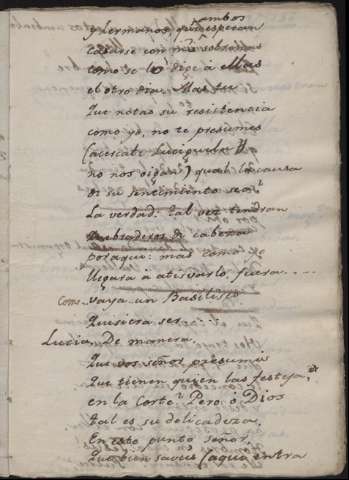 ambos
y hermanos que esperan
casarse con mis sobrinas
como se lo dige à ellas
el otro dia. Mas tu
que notas su resistencia
como yo, no te presumes
(acercate Luciguela
no nos oigan) qual la causa
de su sentimiento sea?
La verdad: tal vez tendran
quebraderos de cabeza
por aqui: mas como
llegara à atisvarlo, fuera....
Como vaya un Basilisco
Quisiera ser
Lucia. De manera,
Que vos señor presumis
Que tienen quien las festeja,
en la Corte? Pero ò Dios
tal es su delicadeza,
En este punto señor,
Que bien saveis (aqui entra